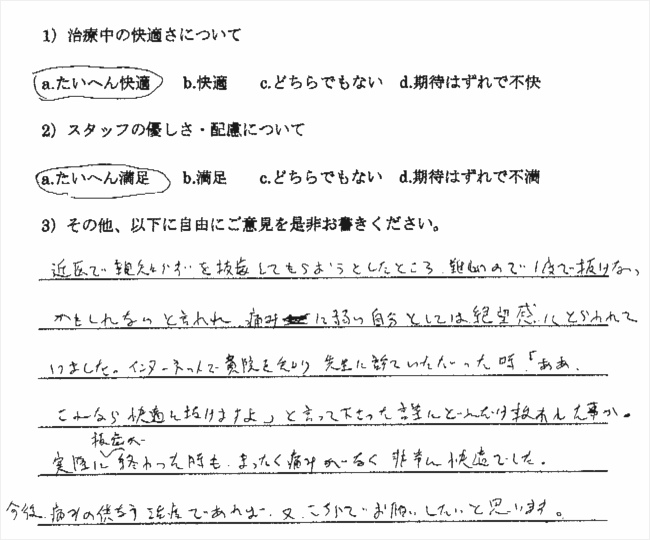 1) 治療中の快適さについて
a.たいへん快適 b.快適 c.どちらでもない d.期待はずれで不快
2) スタッフの優しさ・配慮について
a.たいへん満足 b.満足 c.どちらでもない d.期待はずれで不満
3) その他、以下に自由にご意見を是非お書きください。
近医で親知らずを抜歯してもらおうとしたところ、難しいので1度で抜けない
かもしれないと言われ、痛みに弱い自分としては絶望感にとらわれて
いました。インターネットで貴院を知り先生に診ていただいた時、「ああ、
これなら快適に抜けますよ」と言って下さった言葉にどれだけ救われた事か。
実際に抜歯が終わった時も、まったく痛みがなく非常に快適でした。
今後、痛みの伴なう治療であれば、又、こちらでお願いしたいと思います。